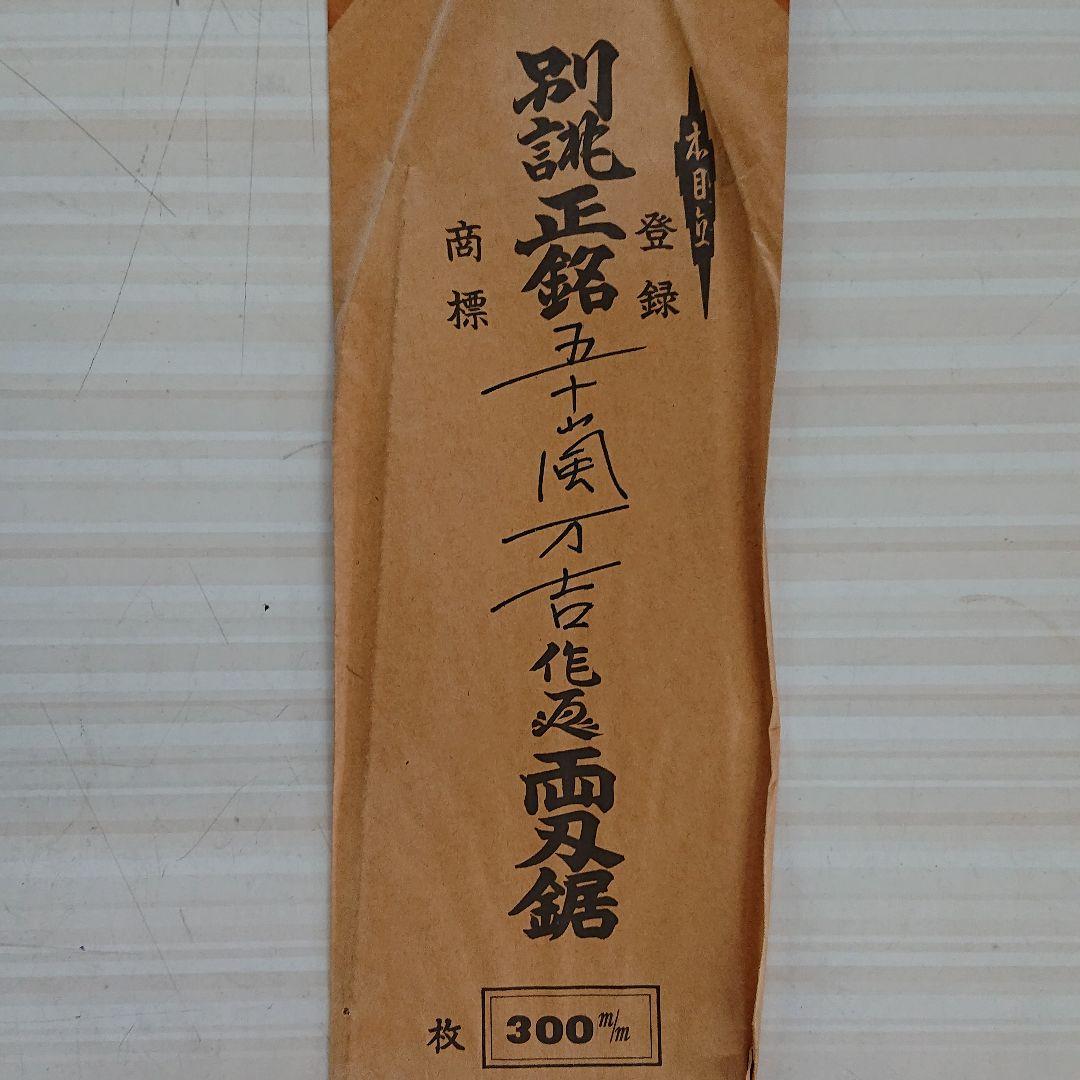 本目立
登録
別誂正銘五十嵐万吉作
両刃鋸
商標
枚
300 m/m